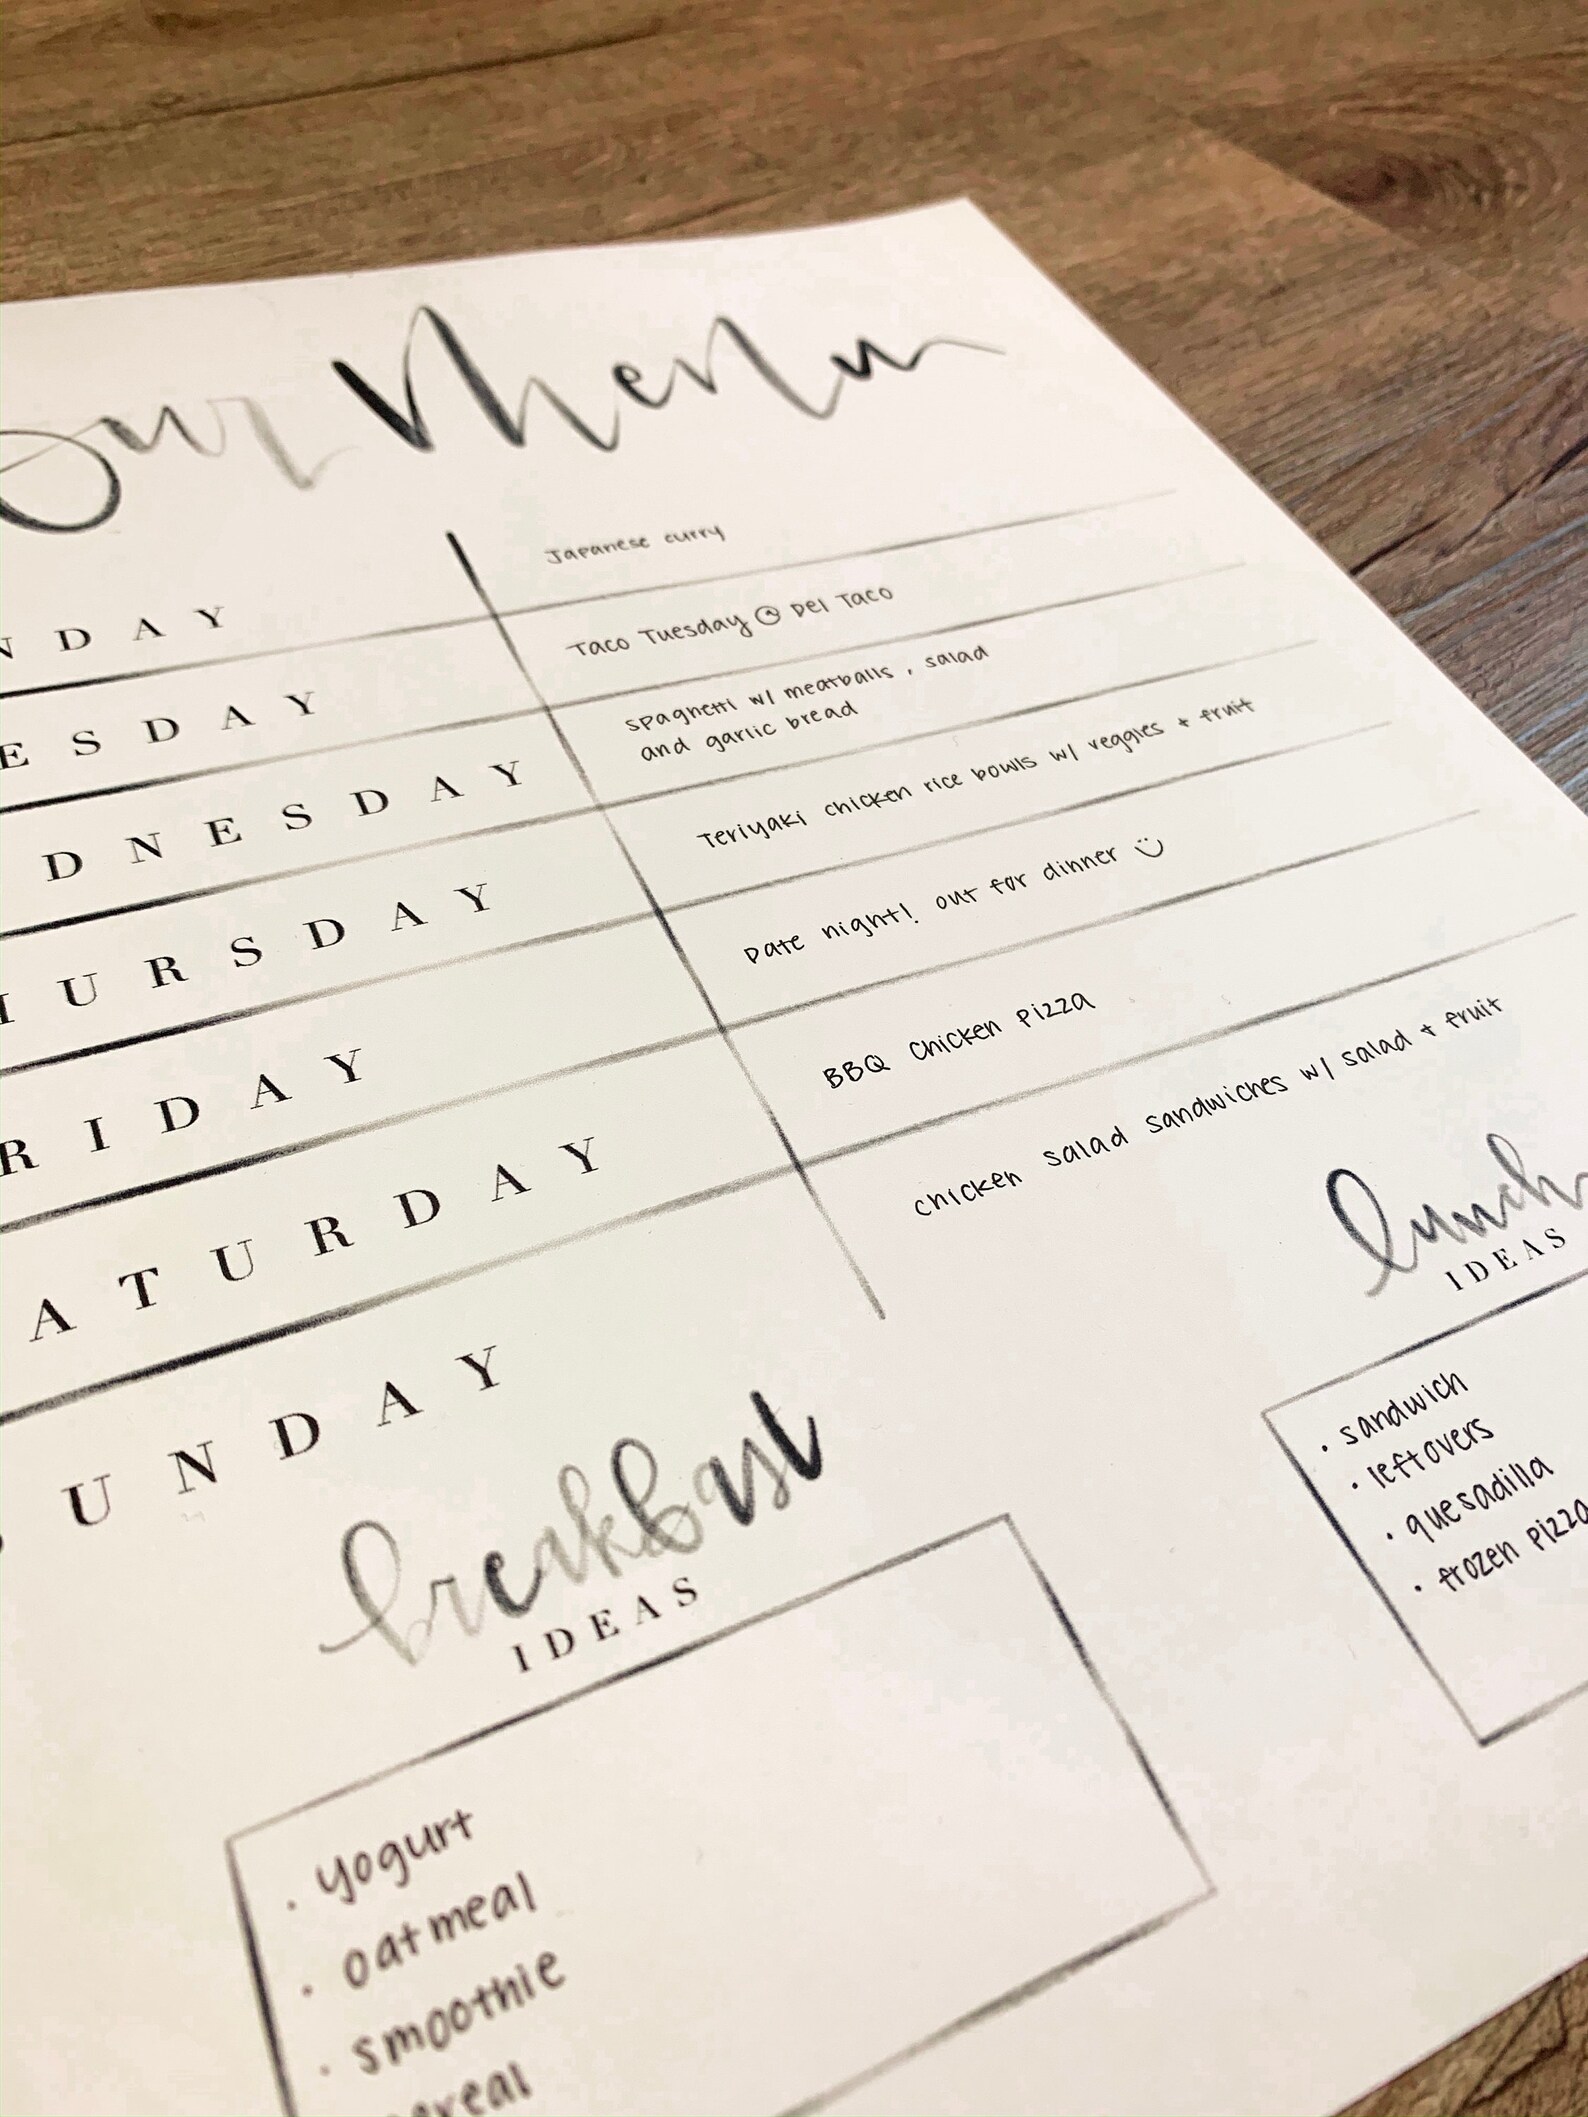 Our Menu
NDAY
Japanese curry
ESDAY
Taco Tuesday @ Del Taco
DNESDAY
spaghetti w/ meatballs, salad
and garlic bread
HURSDAY
Teriyaki chicken rice bowls w/ veggies + fruit
RIDAY
Date night! out for dinner
ATURDAY
BBQ chicken pizza
UNDAY
chicken salad sandwiches w/ salad + fruit
breakfast
IDEAS
· yogurt
· oatmeal
· smoothie
ereal
lunch
IDEAS
· sandwich
· leftovers
· quesadilla
· frozen pizza